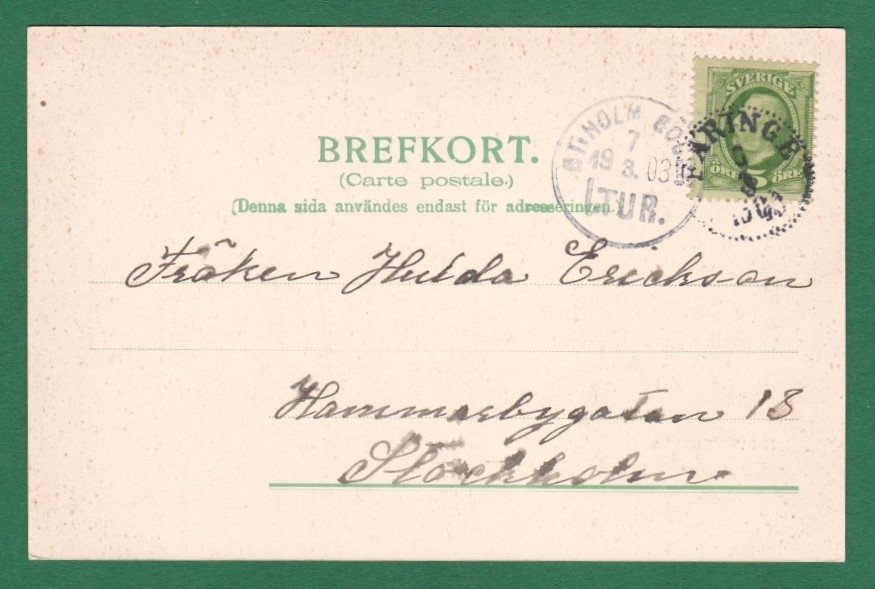 SVERIGE
ÖRE 5 ÖRE
STHOLM
7
19 3 03
1 TUR.
FARINGE
3
BREFKORT.
(Carte postale.)
(Denna sida användes endast för adresseringen.)
Fröken Hulda Erickson
Hammarbygatan 13
Stockholm